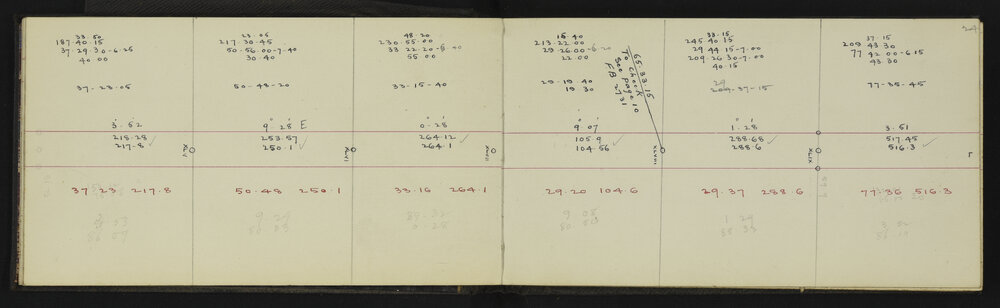 24
33.50
187.40.15
37.29.30-6.25
40.00
37-23.05
3.52
218.28
217.8
XLV
37.23 217.8
23.05
217.30.45
50-56.00-7.40
30.40
50-48-20
9° 28' E
253.57
250.1
XLVI
50.48 250.1
48.20
230.55.00
33.22.20
55.00
33-15-40
0.28
264.12
264.1
XLVII
33.16 264.1
15.40
213.22.00
29.26.00
22.00
29-19.40
19.30
65.33.15
To check
See page 10
FB 2731
9° 07'
105.9
104.56
XLVIII
29.20 104.6
33.15
245.40.15
29.44.15-7.00
209.26.30-7.00
40.15
29
209-37-15
1.28
288.68
288.6
XLIX
29.37 288.6
37.15
209.43.30
77.42.00-6.15
43.30
77-35-45
3.51
517.45
516.3
77.36 516.3